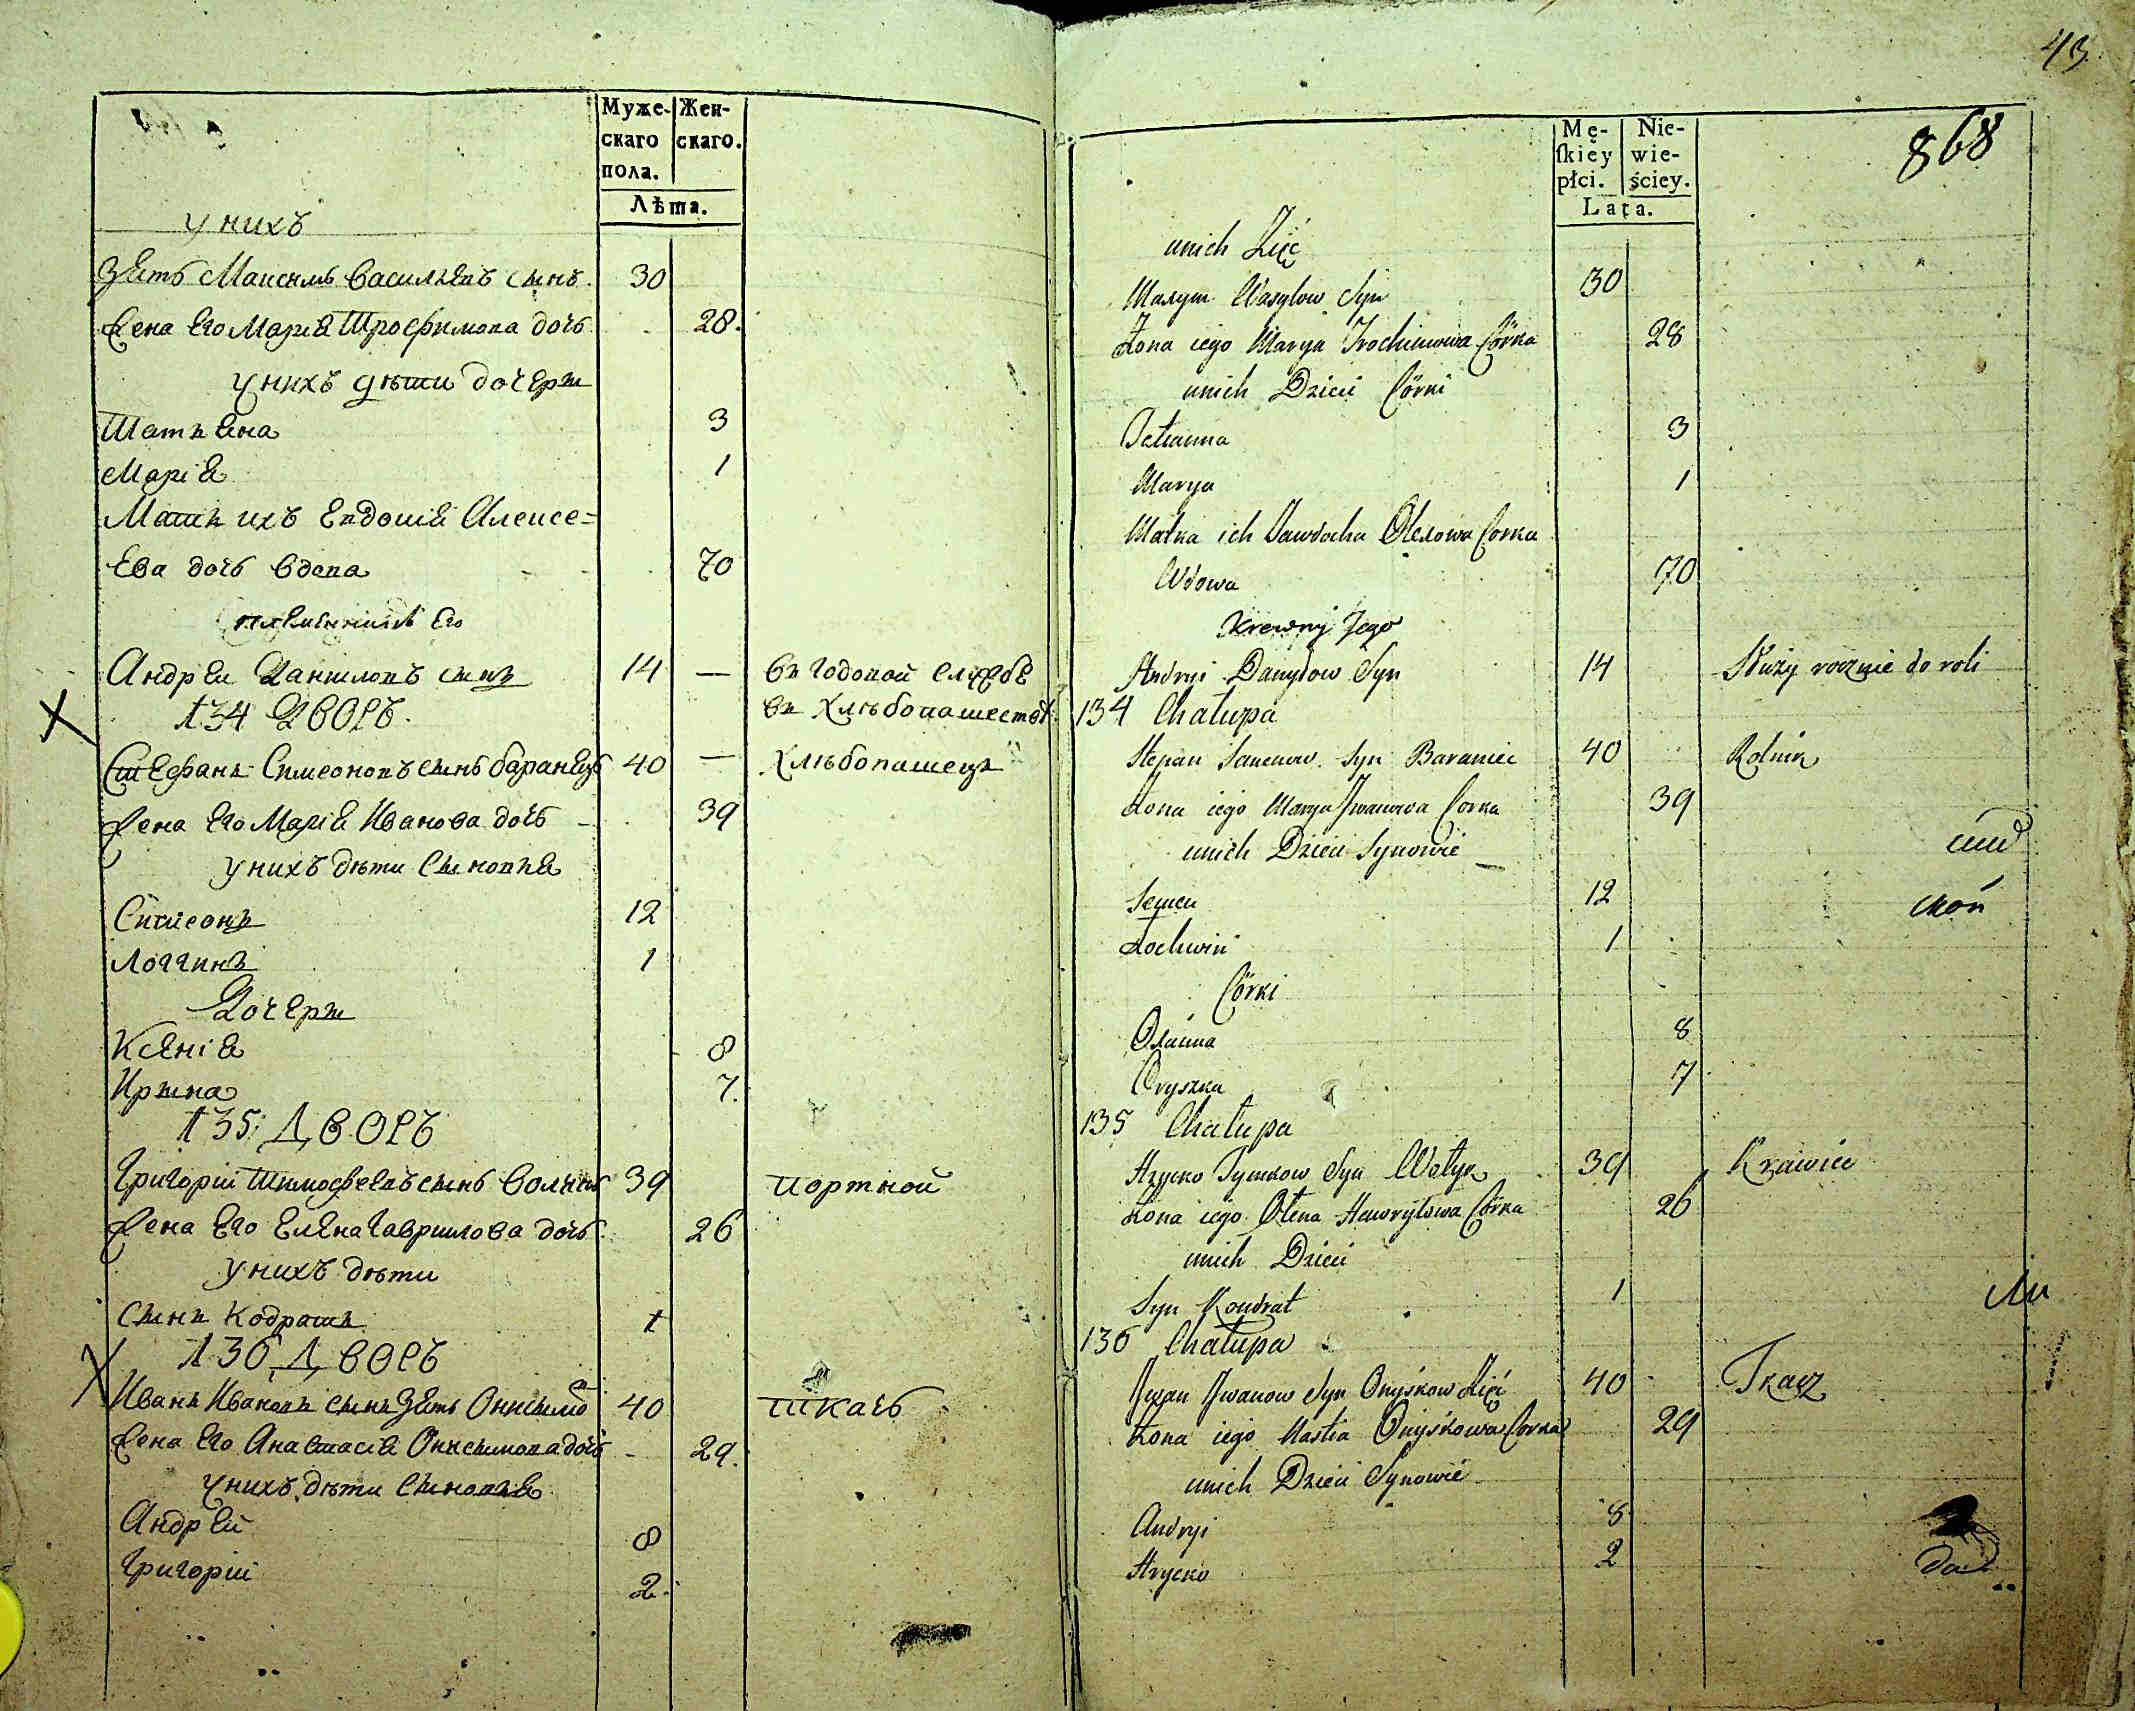 Муже-
скаго
пола.
Жен-
скаго.
Лѣта.
у нихъ
Зять Максимъ Васильевъ сынъ 30
Жена Его Марія Трофимова дочь 28.
у нихъ дѣти дочеры
Татьяна 3
Марія 1
Мать ихъ Евдокія Алексе=
Ева дочь вдова 70
племянникъ Его
Андрей Даниловъ сынъ 14 — въ годовой службѣ
въ хлѣбопашествѣ
134 ДВОРЪ.
Стефанъ Симеоновъ сынъ баранецъ 40 — хлѣбопашецъ
Жена Его Марія Иванова дочь 39
у нихъ дѣти сыновья
Симеонъ 12
Логгинъ 1
Дочеры
Ксенія 8
Ирына 7.
135: ДВОРЪ
Григорій Тимофеевъ сынъ Волыкъ 39 портной
Жена Его Елена Гаврилова дочь 26
у нихъ дѣти
сынъ Кодратъ 1
136 ДВОРЪ
Иванъ Ивановъ сынъ Зять Онисимо 40 ткачь
Жена Его Анастасія Онисимова дочь 29.
у нихъ дѣти сыновья
Андрей 8
Григорій 2.
43
868
Mę-
ſkiey
płci.
Nie-
wie-
ściey.
Lata.
unich Zięć
Maxym Wasylow Syn 30
Żona iego Marya Trochimowa Córka 28
unich Dzieci Córki
Tetianna 3
Marya 1
Matka ich Jawdocha Olexowa Corka
Wdowa 70
Krewny Jego
Andryi Danyłow Syn 14 Służy rocznie do roli
134 Chałupa
Stepan Semenow Syn Baraniec 40 Rolnik
Żona iego Marya Iwanowa Corka 39
unich Dzieci Synowie
Semen 12
Łochwin 1
Córki
Oxanna 8
Oryszka 7
135 Chałupa
Hrycko Tymkow Syn Wołyk 39 Krawiec
Żona iego Ołena Hawryłowa Córka 26
unich Dzieci
Syn Kondrat 1
136 Chałupa
Iwan Iwanow Syn Onyśkow Zięć 40 Tkacz
Żona iego Nastia Onyśkowa Corka 29
unich Dzieci Synowie
Andryi 8
Hrycko 2